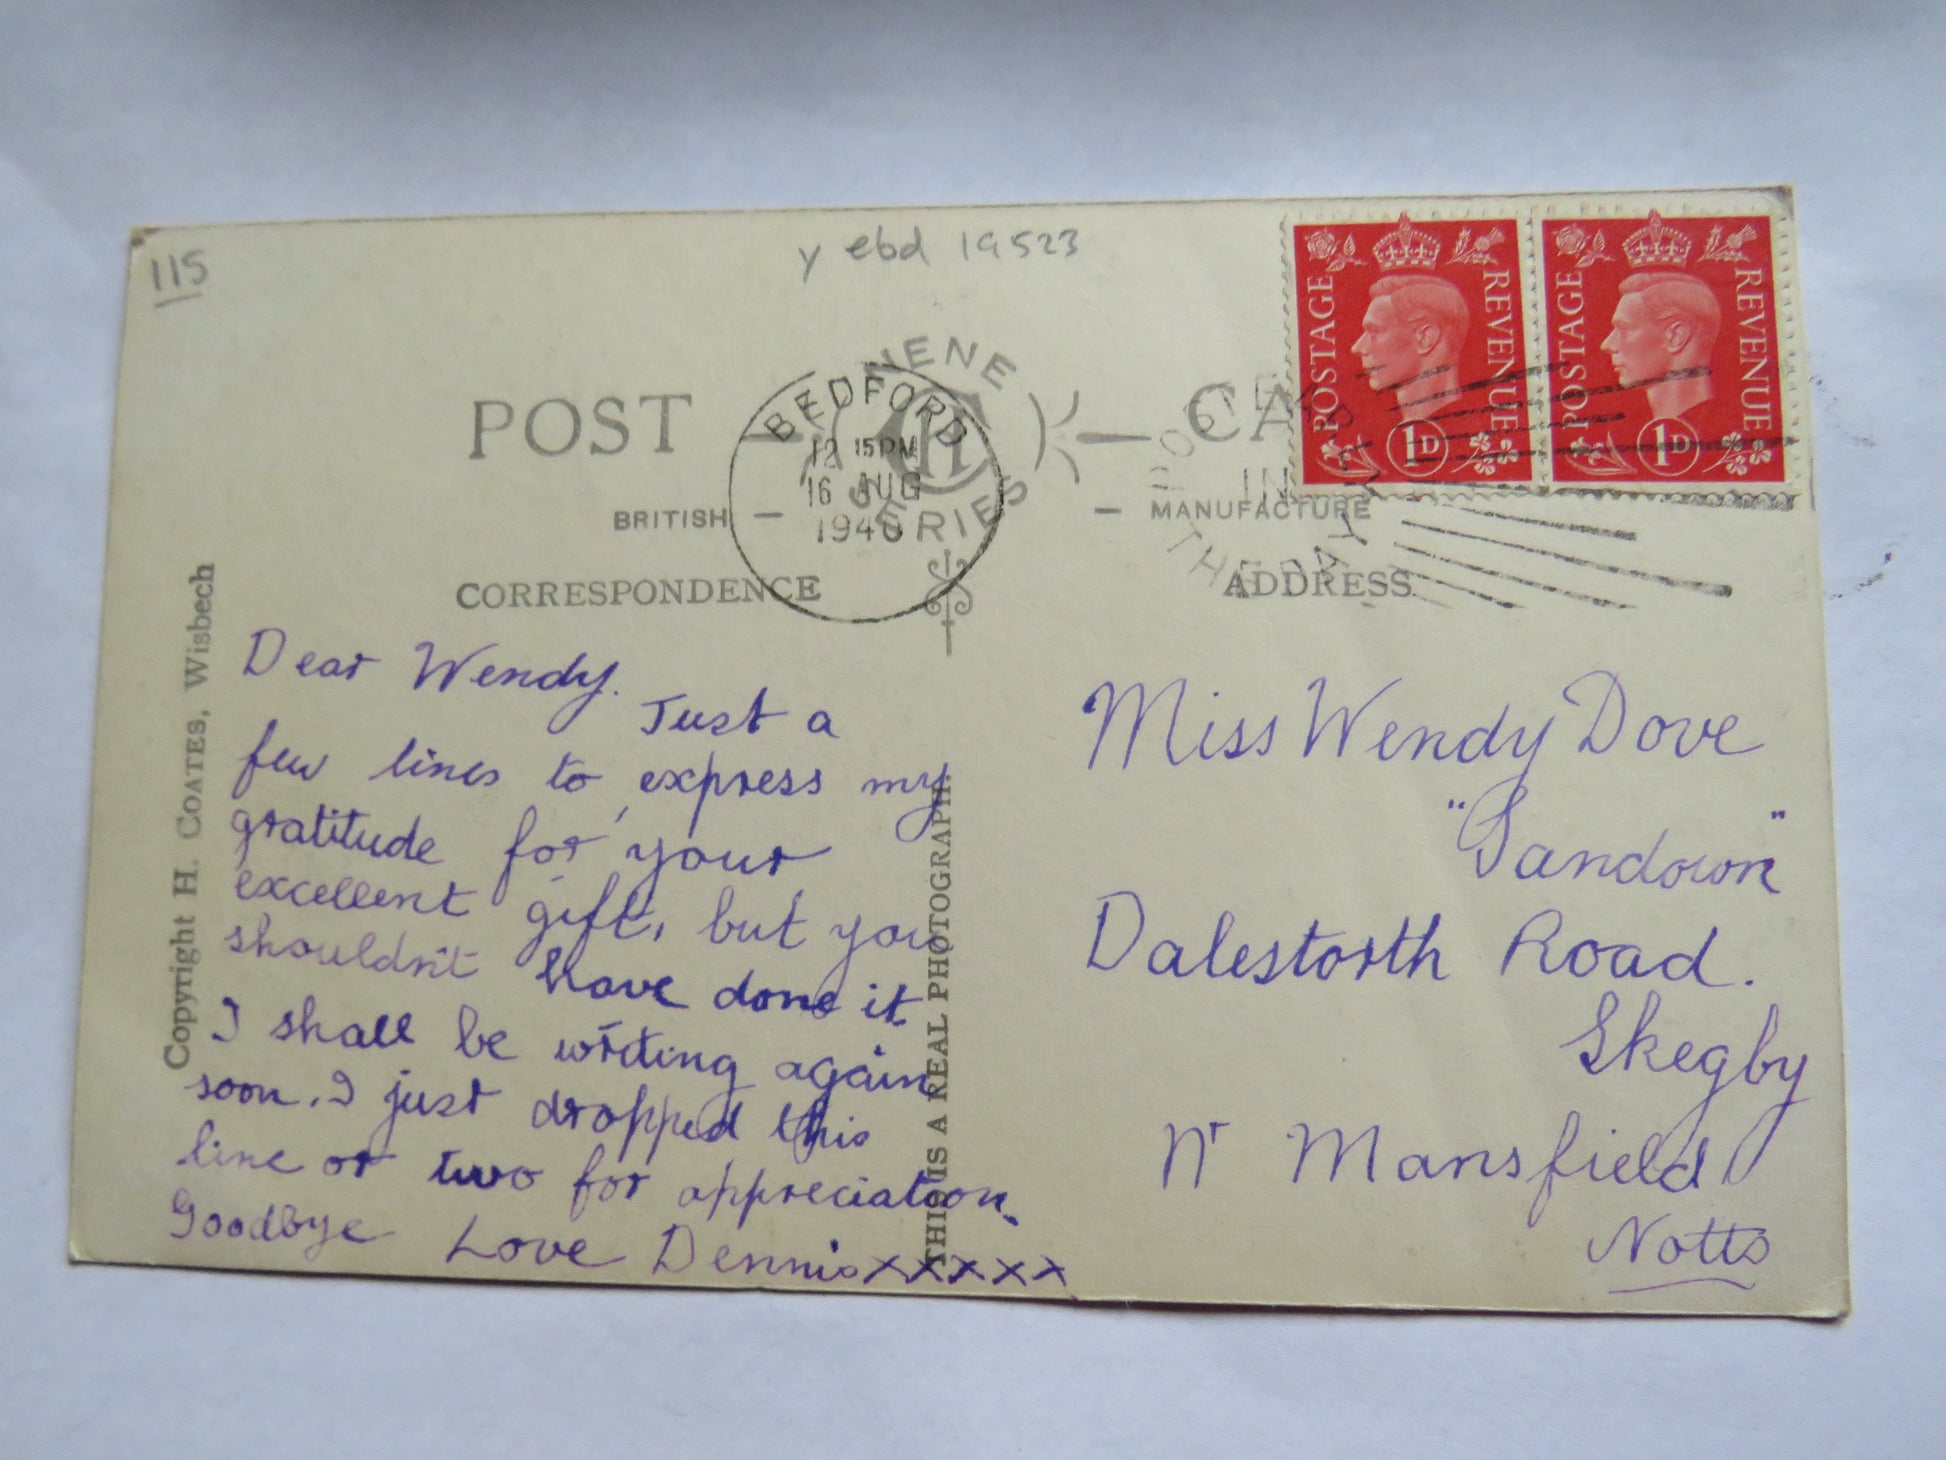 115
y ebd 19523
POSTAGE REVENUE 1D
POSTAGE REVENUE 1D
NENE
SERIES
POST CA
BEDFORD
12 15 PM
16 AUG
1946
BRITISH — — MANUFACTURE
POST EARLY
IN
THE DAY
CORRESPONDENCE
ADDRESS
Copyright H. COATES, Wisbech
THIS IS A REAL PHOTOGRAPH.
Dear Wendy.
Just a
few lines to express my
gratitude for your
excellent gift, but you
shouldn't have done it
I shall be writing again
soon. I just dropped this
line or two for appreciation.
Goodbye Love Dennis xxxxx
Miss Wendy Dove
"Sandown"
Dalestorth Road.
Skegby
Nr Mansfield
Notts